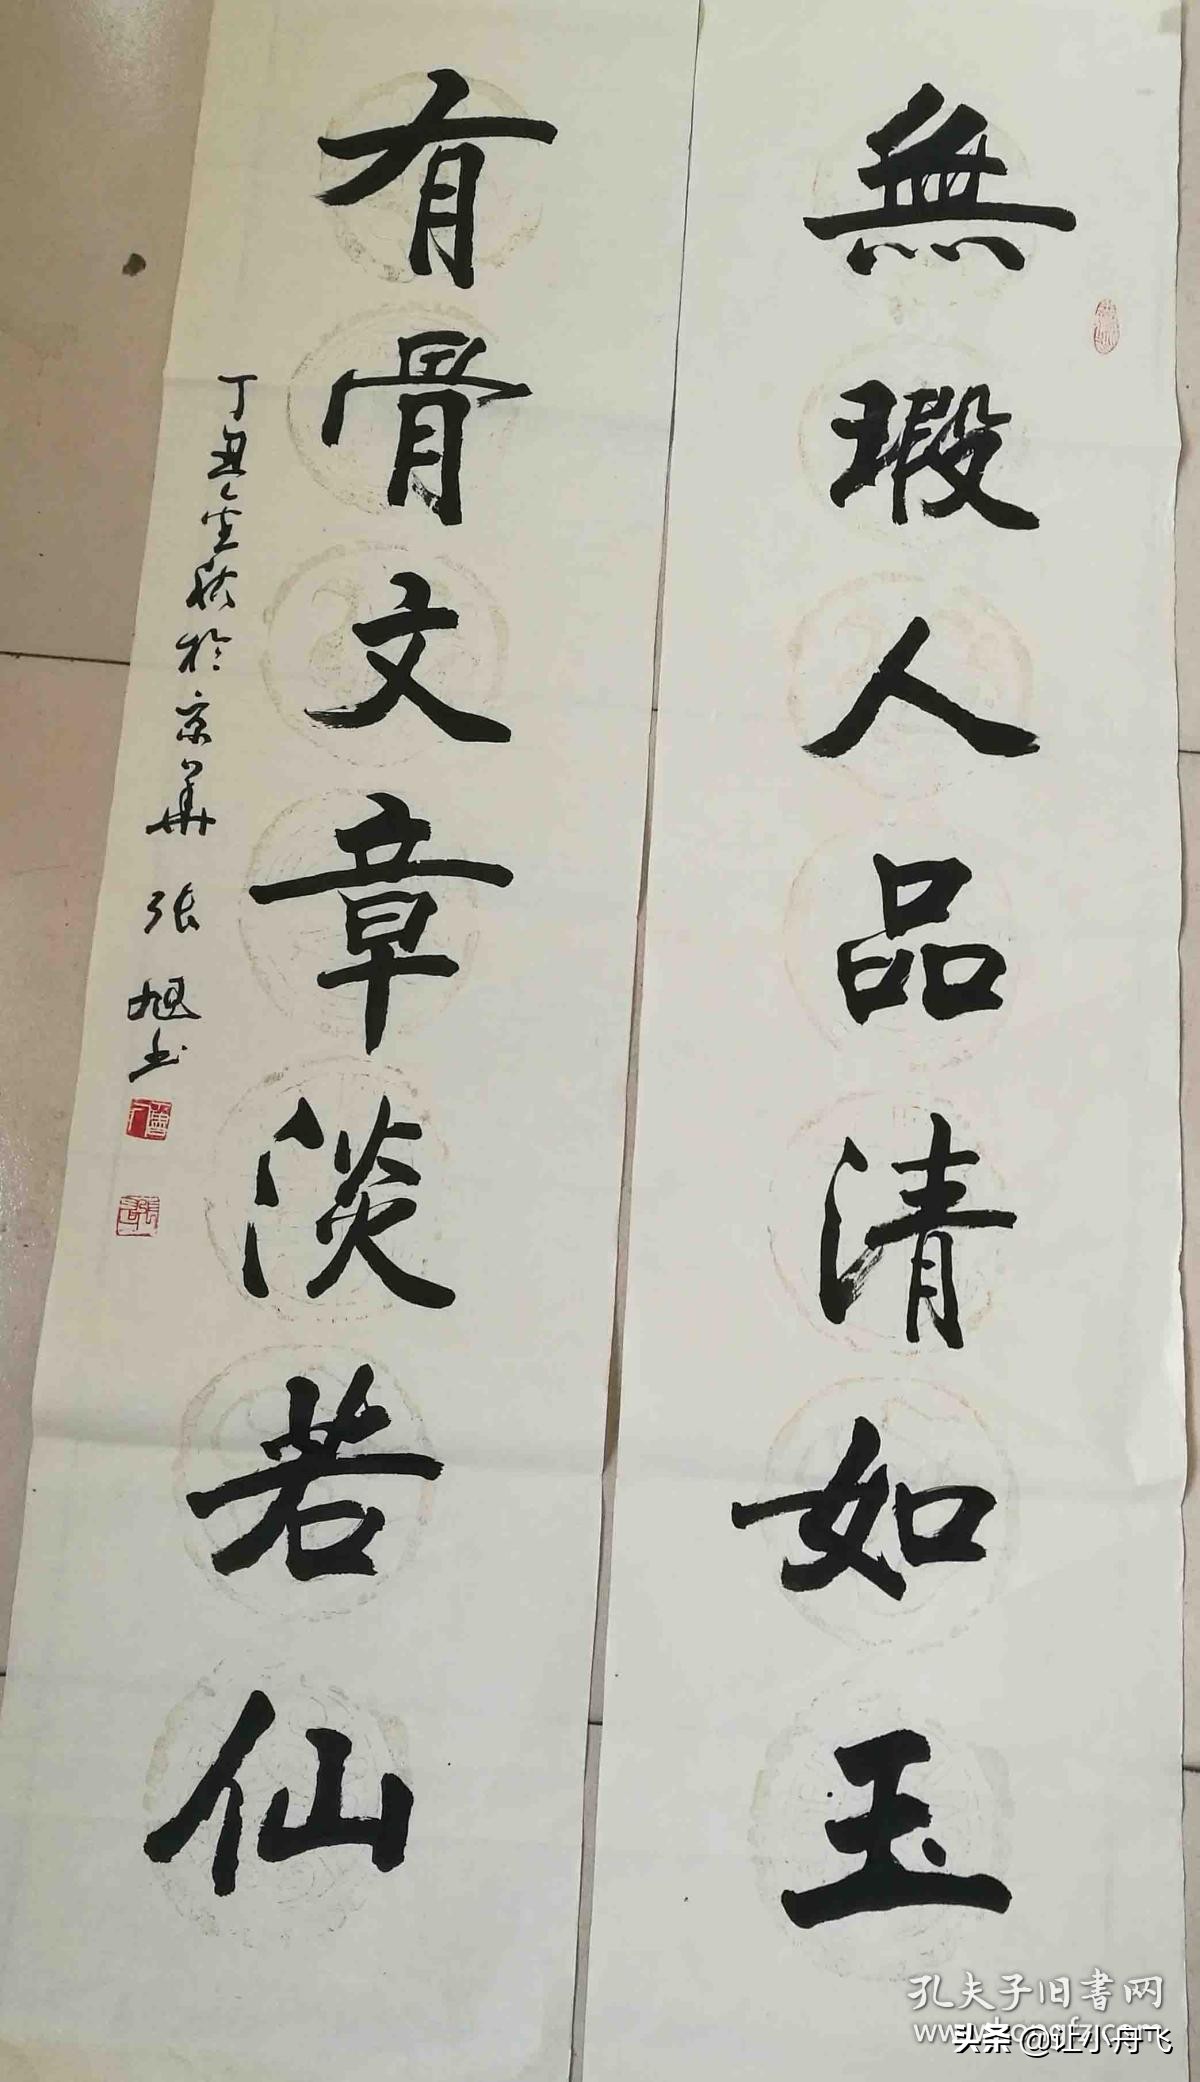 無瑕人品清如玉
有骨文章淡若仙
丁丑金秋於京華 張旭书
孔夫子旧书网
头条 @让小舟飞